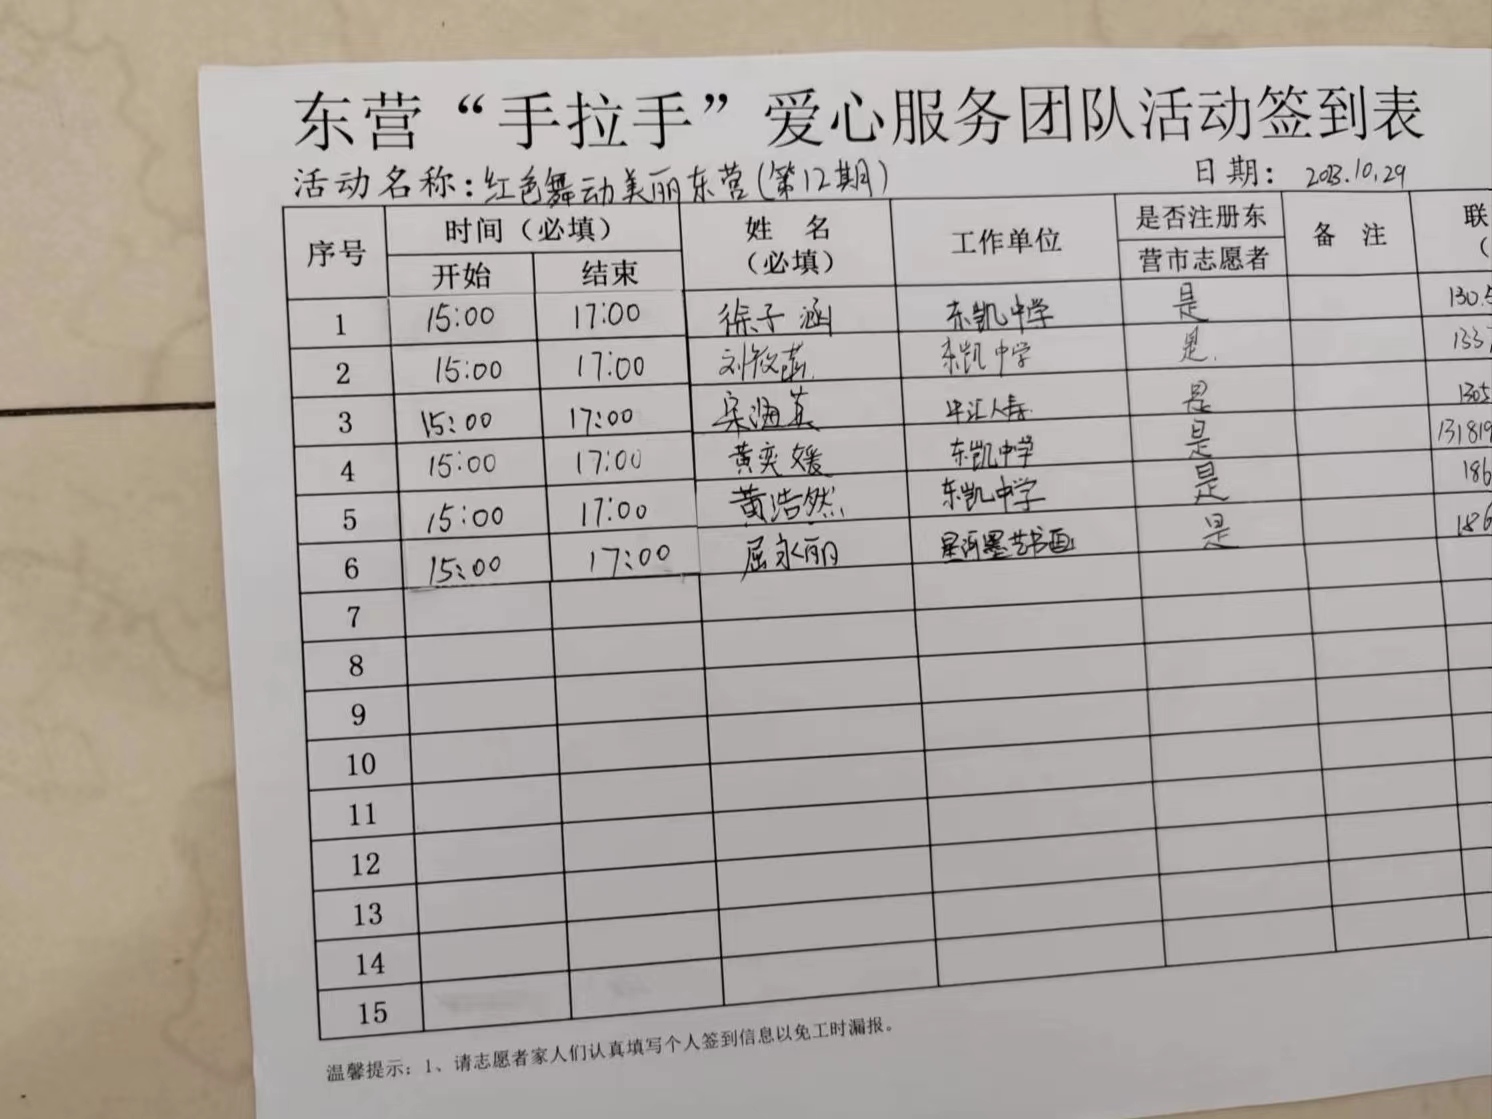 东营“手拉手”爱心服务团队活动签到表
活动名称：红色舞动美丽东营(第12期) 日期：2023.10.29
序号 时间（必填） 姓 名 工作单位 是否注册东 备 注 联
开始 结束 （必填） 营市志愿者 （
1 15:00 17:00 徐子涵 东凯中学 是 130.5
2 15:00 17:00 刘 东凯中学 是. 1337
3 15:00 17:00 宋海英 人寿 是 1305
4 15:00 17:00 黄奕媛 东凯中学 是 131819
5 15:00 17:00 黄浩然 东凯中学 是 186
6 15:00 17:00 屈永丽 星河墨艺书画 是 186
7
8
9
10
11
12
13
14
15
温馨提示：1、请志愿者家人们认真填写个人签到信息以免工时漏报。